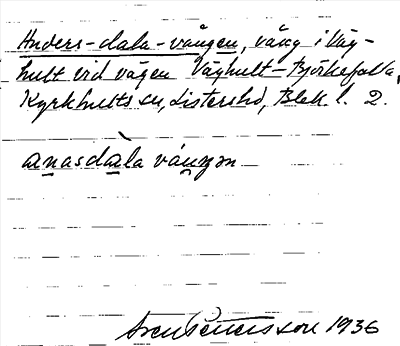 Anders-dala-vången, väng i Väg-
hult vid vägen Väghult-Björkefalla,
Kyrkhults sn, Listers hd, Blek. l. 2.
anasdàla vángen
Sven Benersson 1936